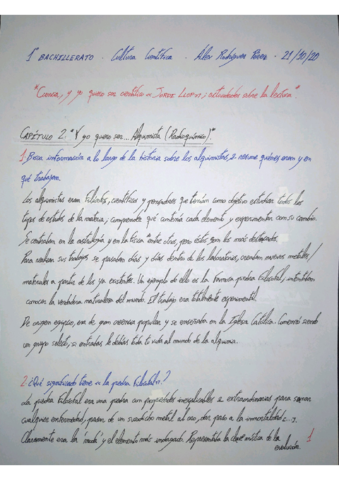 1º BACHILLERATO - Cultura Científica - Álex Rodríguez - 21/10/20
"Ciencia, y yo quiero ser científico. , actividades sobre la lectura"
CAPÍTULO 2. "Y yo quiero ser... Alquimista (Radioquímico)"
1. Busca información a lo largo de la historia sobre los alquimistas, y resume quiénes eran y en
qué trabajaban.
Los alquimistas eran filósofos, científicos y pensadores que tenían como objetivo estudiar todos los
tipos de estados de la materia, comprender qué contenía cada elemento y experimentar con su cambio.
Se centraban en la astrología, y en la entre otras, pero éstas son las más destacadas.
Para realizar sus trabajos se pasaban días y días dentro de los laboratorios, creaban nuevos metales/
materiales a partir de los ya existentes. Un ejemplo de ello es la famosa piedra filosofal, intentaban
conocer la verdadera naturaleza del mundo. El trabajo era totalmente experimental.
De origen egipcio, era de gran creencia popular y se en la Iglesia Católica. Comenzó siendo
un grupo selecto, si entrabas le debías toda tu vida al mundo de la alquimia.
2. ¿Qué significado tiene la piedra filosofal?
La piedra filosofal era una piedra con propiedades inexplicables y extraordinarias para curar
cualquier enfermedad, pasar de un sencillo metal al oro, dar paso a la inmortalidad...
Claramente era la "moda" y el elemento más indagado. Representaba la clave mística de la
1